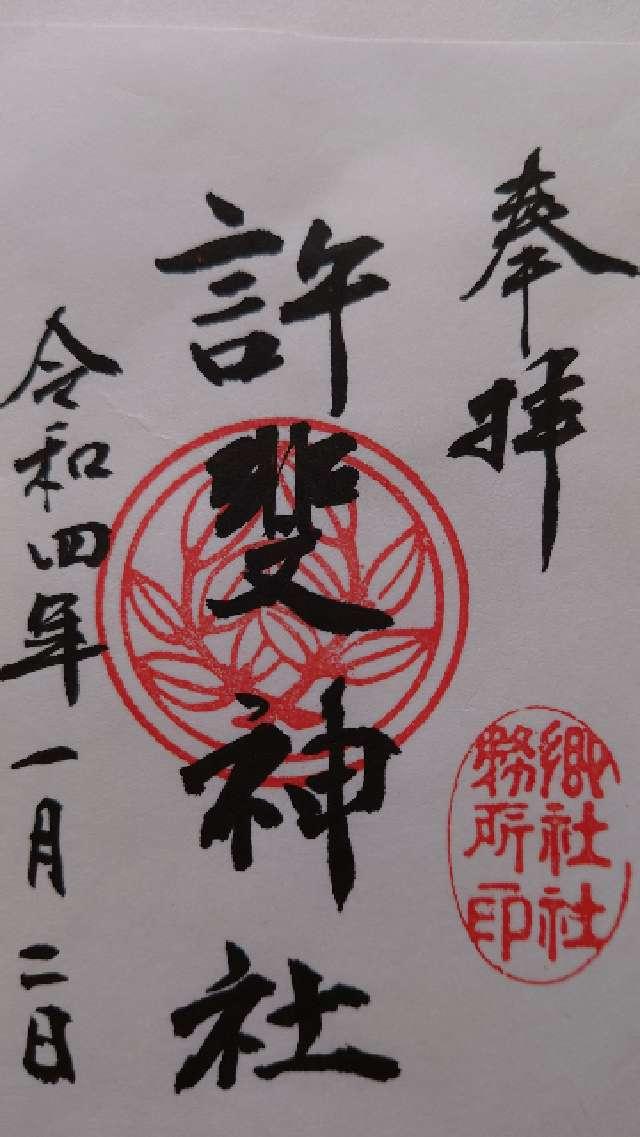 奉拝
許斐神社
令和四年一月二日
郷社社
務所印